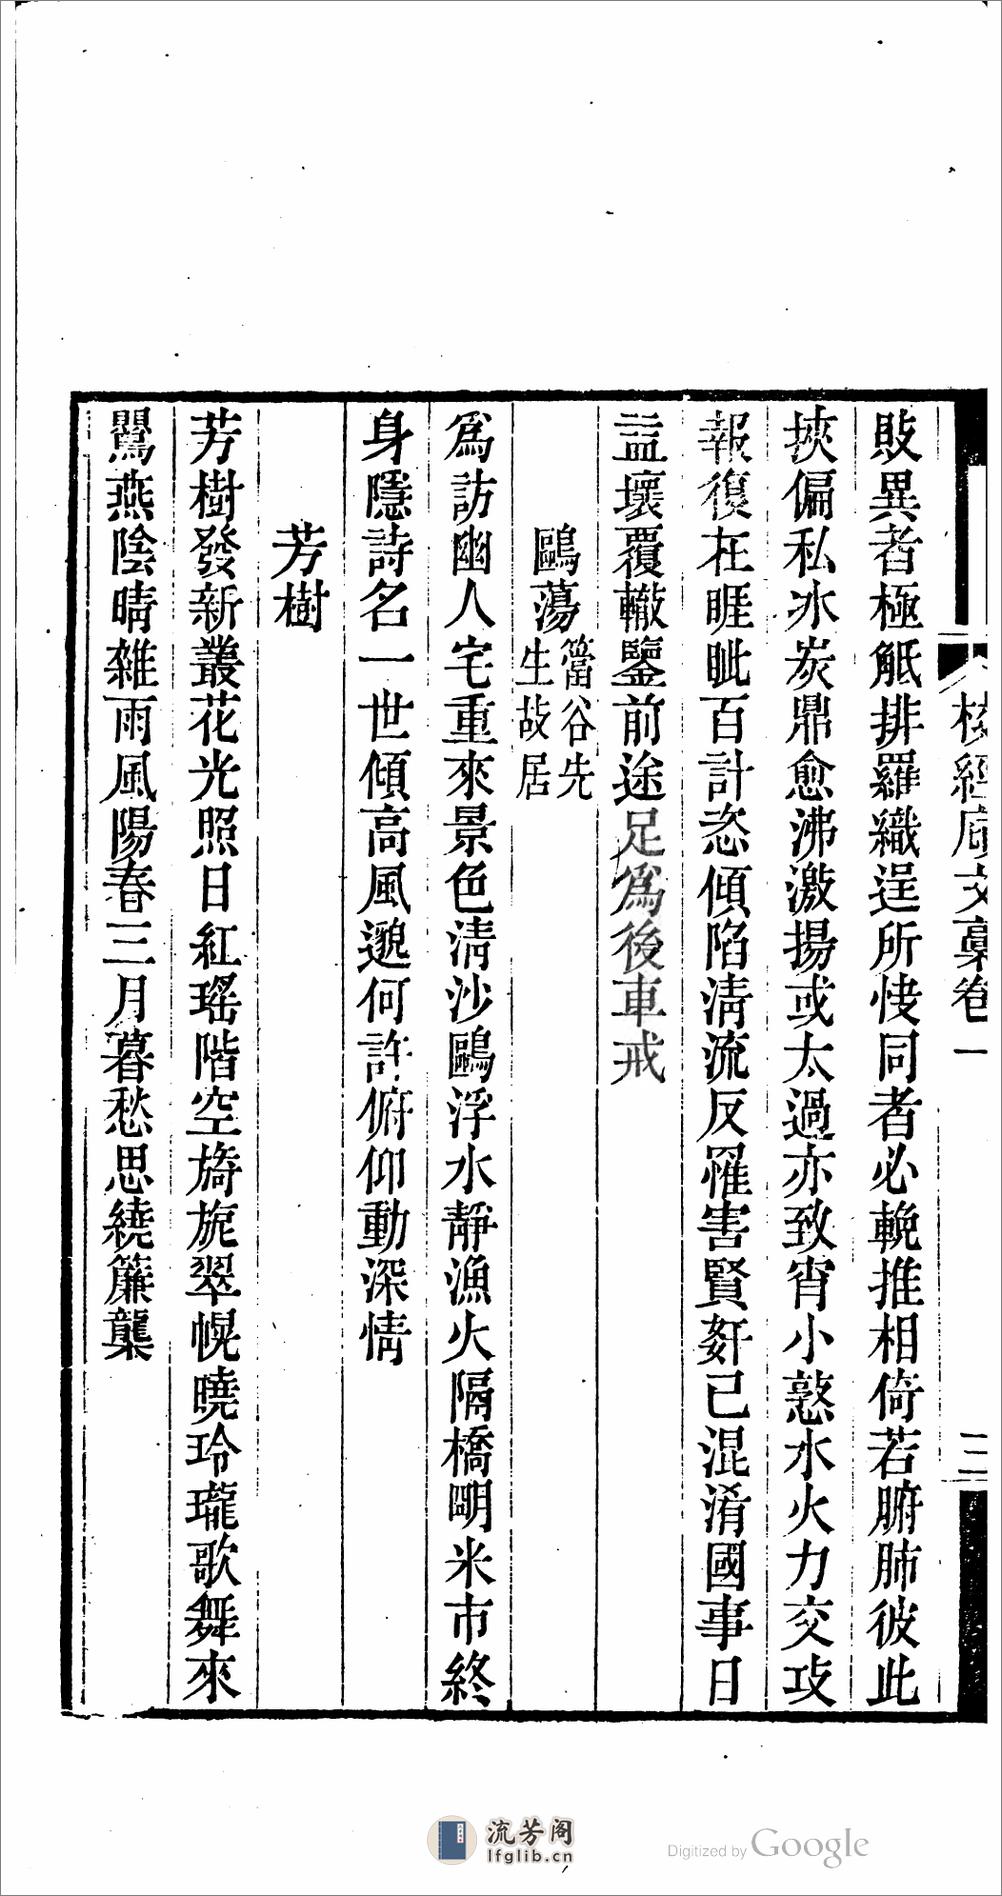 校經廎文稾卷一
三
敗異者極觝排羅織逞所快同者必輓推相倚若腑肺彼此
挾偏私冰炭鼎愈沸激揚或太過亦致宵小憝水火力交攻
報復在睚眦百計恣傾陷淸流反罹害賢奸已混淆國事日
益壞覆轍鑒前途足爲後車戒
鷗蕩
簹谷先
生故居
爲訪幽人宅重來景色淸沙鷗浮水靜漁火隔橋明米市終
身隱詩名一世傾高風邈何許俯仰動深情
芳樹
芳樹發新叢花光照日紅瑤階空旖旎翠幌曉玲瓏歌舞來
鸎燕陰晴雜雨風陽春三月暮愁思繞簾櫳
流芳阁
lfglib.cn
Digitized by Google